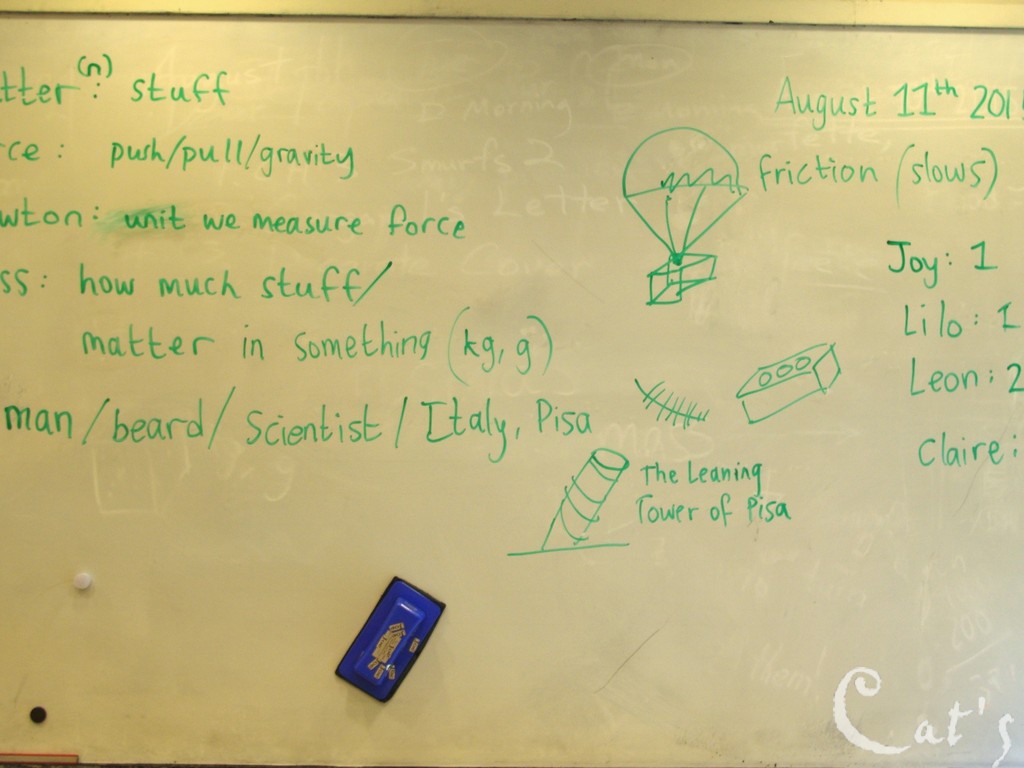 tter (n): stuff
rce: push/pull/gravity
wton: unit we measure force
ss: how much stuff/
matter in something (kg, g)
man/beard/scientist/Italy, Pisa
August 11th 201
friction (slows)
Joy: 1
Lilo: 1
Leon: 2
Claire:
The Leaning
Tower of Pisa
Cat's